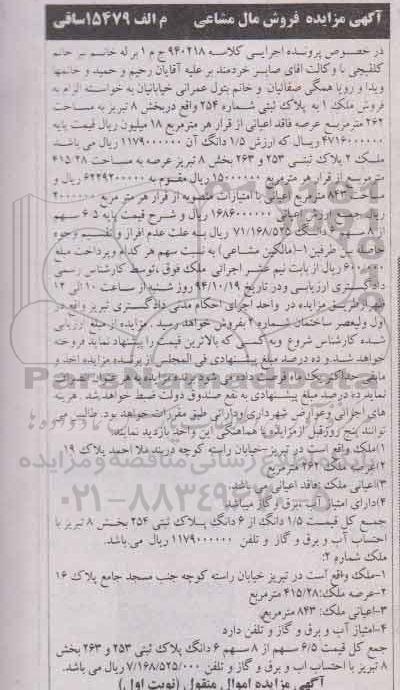 آگهی مزایده فروش مال مشاعی م الف ۱۵۴۷۹ساقی
در خصوص پرونده اجرایی کلاسه ۹۴۰۲۱۸ ج م ۱ بر له خانم خانم
کلقیچی با وکالت اقای صابر خردمند بر علیه آقایان رحیم و حمید و خانمها
ویدا و رویا همگی صقالیان و خانم بتول عمرانی خیابانیان به خواسته الزام به
فروش ملک ۱ به پلاک ثبتی شماره ۲۵۴ واقع دربخش ۸ تبریز به مساحت
۲۶۲ مترمربع عرصه فاقد اعیانی از قرار هر مترمربع ۱۸ میلیون ریال قیمت پایه
۴۷۱۶۰۰۰۰۰۰ ریال که ارزش ۱/۵ دانگ آن ۱۱۷۹۰۰۰۰۰۰ ریال می باشد
ملک ۲ پلاک ثبتی ۲۵۳ و ۲۶۳ بخش ۸ تبریز عرصه به مساحت ۴۱۵/۲۸
مترمربع از قرار هر مترمربع ۱۵۰۰۰۰۰۰ ریال مقوم به ۶۲۲۹۲۰۰۰۰۰ ریال و
مساحت ۸۴۳ مترمربع اعیانی با امتیازات منصوبه از قرار هر متر مربع ۲۰۰۰۰۰۰
ریال جمع ارزش اعیانی ۱۶۸۶۰۰۰۰۰۰ ریال و شرح قیمت پایه ۶/۵ سهم
از ۸ سهم ۶ دانگ ۷/۱۶۸/۵۲۵ ریال به علت عدم افراز و تقسیم وجوه
حاصله بین طرفین ۱-(مالکین مشاعی) به نسبت سهم هر کدام و پرداخت مبلغ
۶۰۰/۰۰۰ ریال از بابت نیم عشر اجرائی ملک فوق ،توسط کارشناس رسمی
دادگستری ارزیابی ودر تاریخ ۹۴/۱۰/۱۹ روز شنبه از ساعت ۱۰ الی ۱۲
ظهر از طریق مزایده در واحد اجرای احکام مدنی دادگستری تبریز واقع در
اول ولیعصر ساختمان شماره ۲ بفروش خواهد رسید . مزایده از مبلغ ارزیابی
شده کارشناس شروع وبه کسی که بالاترین قیمت را پیشنهاد نماید فروخته
خواهد شد و ده درصد مبلغ پیشنهادی فی المجلس از برنده مزایده اخذ و
مابقی حداکثر یک ماه فرصت داده می شود برنده مزایده به هر دلیلی
نماید ده درصد مبلغ پیشنهادی به نفع صندوق دولت ضبط خواهد شد . هزینه
های اجرائی وعوارض شهرداری ودارائی طبق مقررات خواهد بود. طالبین می
توانند پنج روز قبل از مزایده با هماهنگی این واحد بازدید نمایند.
۱)ملک واقع است در تبریز-خیابان راسته کوچه دربند ملا احمد پلاک ۱۹
۲)عرصه ملک ۲۶۲ مترمربع
۳)اعیانی ملک :فاقد اعیانی می باشد.
۴)دارای امتیاز آب ،برق و گاز میباشد
جمع کل قیمت ۱/۵ دانگ از ۶ دانگ پلاک ثبتی ۲۵۴ بخش ۸ تبریز با
احتساب آب و برق و گاز و تلفن ۱۱۷۹۰۰۰۰۰۰ ریال می.باشد.
ملک شماره ۲:
۱-ملک واقع است در تبریز خیابان راسته کوچه جنب مسجد جامع پلاک ۱۶
۲-عرصه ملک: ۴۱۵/۲۸ مترمربع
۳-اعیانی ملک: ۸۴۳ مترمربع
۴-امتیاز آب و برق و گاز و تلفن دارد
جمع کل قیمت ۶/۵ سهم از ۸ سهم ۶ دانگ پلاک ثبتی ۲۵۳ و ۲۶۳ بخش
۸ تبریز با احتساب آب و برق و گاز و تلفن ۷/۱۶۸/۵۲۵/۰۰۰ ریال می باشد.
آگهی مزایده اموال منقول (نوبت اول)
ParsNamadData
پایگاه اطلاع رسانی مناقصه و مزایده
۰۲۱-۸۸۳۴۹۶۷۰-۵